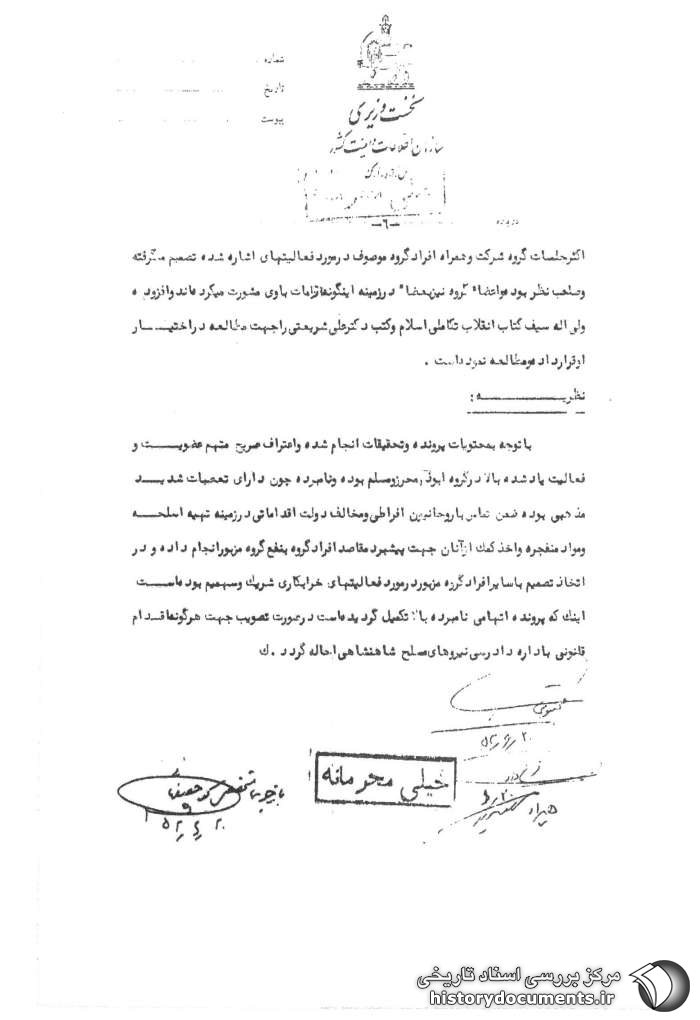 شماره
تاریخ
پیوست
نخست وزیری
سازمان اطلاعات و امنیت کشور
درباره
-٦-
اکثر جلسات گروه شرکت و همراه افراد گروه موصوف در مورد فعالیتهای اشاره شده تصمیم میگرفته
وصاحب نظر بوده و اعضاء گروه نیز بعضاً در زمینه اینگونه اقدامات با وی مشورت میکرده‌اند و افزوده
ولی اله سیف کتاب انقلاب تکاملی اسلام و کتب دکتر علی شریعتی را جهت مطالعه در اختیـــــار
او قرار داده و مطالعه نموده است .
نظریـــــــــــه :
با توجه بمحتویات پرونده و تحقیقات انجام شده و اعتراف صریح متهم عضویـــت و
فعالیت یاد شده بالا در گروه ابوذر محرز و مسلم بوده و نامبرده چون دارای تعصبات شدیـــد
مذهبی بوده ضمن تماس با روحانیون افراطی و مخالف دولت اقداماتی در زمینه تهیه اسلحــه
و مواد منفجره و اخذ کمک از آنان جهت پیشبرد مقاصد افراد گروه بنفع گروه مزبور انجام داده و در
اتخاذ تصمیم با سایر افراد گروه مزبور در مورد فعالیتهای خرابکاری شریک و سهیم بوده‌اســـت
اینک که پرونده اتهامی نامبرده بالا تکمیل گردیده‌است در صورت تصویب جهت هرگونه اقـــدام
قانونی باداره دادرسی نیروهای مسلح شاهنشاهی احاله گردد . ک
خیلی محرمانه
مرکز بررسی اسناد تاریخی
historydocuments.ir